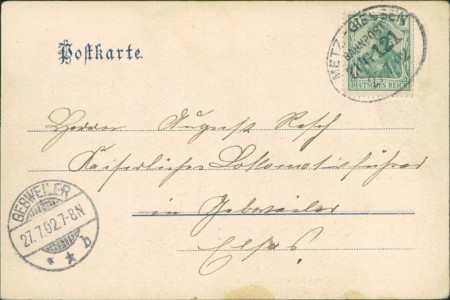 Postkarte.
METZ - GIESSEN
BAHNPOST
ZUG 121
DEUTSCHES REICH
Herrn August Resch
Kaiserlicher Lokomotivführer
in Gebweiler
Elsaß
GEBWEILER
27.7.02.7-8.N
* * b